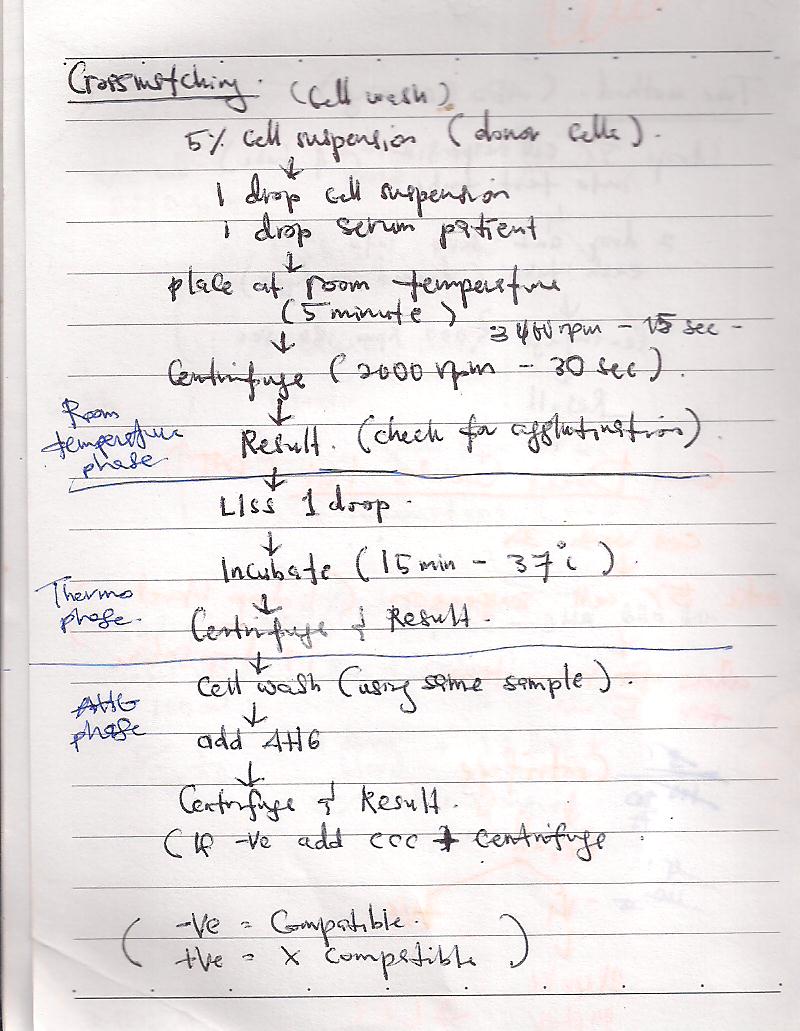 Crossmatching. (Cell wash)
5% cell suspension (donor cells).
↓
1 drop cell suspension
1 drop serum patient
↓
place at room temperature
(5 minute)
3400 rpm - 15 sec -
↓
Centrifuge (2000 rpm - 30 sec).
↓
Room
temperature
phase.
Result. (check for agglutination)
↓
LISS 1 drop.
↓
Incubate (15 min - 37°C).
↓
Thermo
phase.
Centrifuge & Result.
↓
Cell wash (using same sample).
↓
AHG
phase
add AHG
↓
Centrifuge & Result.
(If -ve add CCC + centrifuge
( -ve = Compatible.
+ve = X compatible )